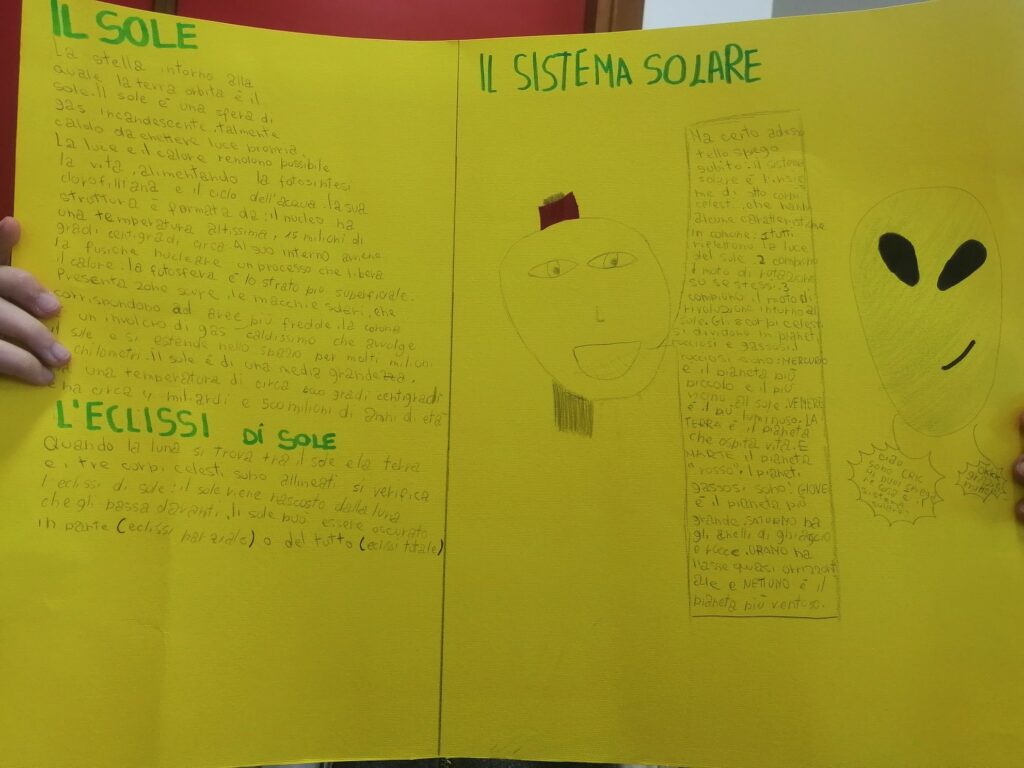 IL SOLE
La stella intorno alla
quale la terra orbita è il
sole. Il sole è una sfera di
gas incandescente, talmente
caldo da emettere luce propria.
La luce e il calore rendono possibile
la vita, alimentando la fotosintesi
clorofilliana e il ciclo dell'acqua. la sua
struttura è formata da: il nucleo ha
una temperatura altissima, 15 milioni di
gradi centigradi circa. Al suo interno avviene
la fusione nucleare un processo che libera
il calore; la fotosfera è lo strato più superficiale.
Presenta zone scure, le macchie solari, che
corrispondono ad aree più fredde. la corona
un involucro di gas caldissimo che avvolge
il sole e si estende nello spazio per molti milioni
chilometri. Il sole è di una media grandezza,
una temperatura di circa gradi centigradi
ha circa 4 miliardi e 500 milioni di anni di età
L'ECLISSI DI SOLE
Quando la luna si trova tra il sole e la terra
e i tre corpi celesti sono allineati si verifica
l'eclissi di sole: il sole viene nascosto dalla luna
che gli passa davanti. Il sole può essere oscurato
in parte (eclissi parziale) o del tutto (eclissi totale)
IL SISTEMA SOLARE
Ha certo adesso
tello spego
subito: il sistema
solare è l'insie
me di otto corpi
celesti, che hanno
alcune caratteristiche
in comune: 1 tutti
riflettono la luce
del sole. 2 compiono
il moto di rotazione
su se stessi. 3
compiono il moto di
rivoluzione intorno al
sole. Gli 8 corpi celesti
si dividono in pianeti
rocciosi e gassosi. I
rocciosi sono: MERCURIO
è il pianeta più
piccolo e il più
vicino al sole. VENERE
è il più luminoso. LA
TERRA è il pianeta
che ospita vita. E
MARTE il pianeta
"rosso". I pianeti
gassosi sono: GIOVE
è il pianeta più
grande. SATURNO ha
gli anelli di ghiaccio
e rocce. URANO ha
l'asse quasi orizzont
ale e NETTUNO è il
pianeta più ventoso.
ciao
sono CRIC
mi puoi spiega
re cosa è il
sistema
solare